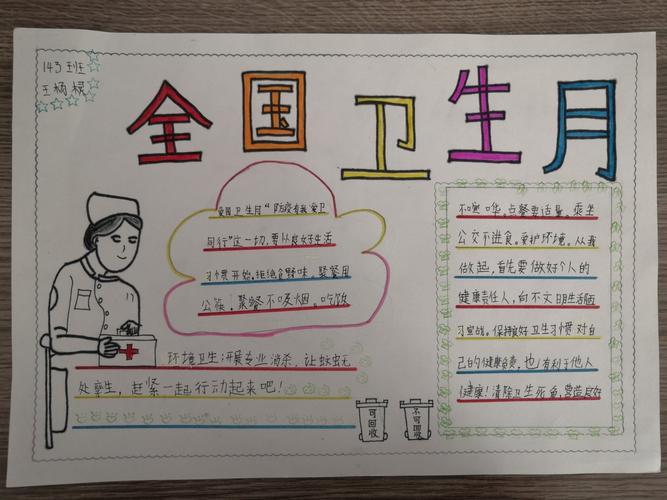 143班
王杨禄
全国卫生月
爱国卫生月“防疫有我爱卫
同行”这一切,要从良好生活
习惯开始,拒绝食野味。聚餐用
公筷。聚餐不吸烟。吃饭
不喧哗。点餐要适量。乘坐
公交不进食。爱护环境。从我
做起,首先要做好个人的
健康责任人,向不文明生活陋
习宣战。保持良好卫生习惯对自
己的健康负责,也有利于他人
健康!清除卫生死鱼,营造良好
环境卫生:开展专业消杀,让蚊蚁无
处孳生,赶紧一起行动起来吧!
可回收
不可回收